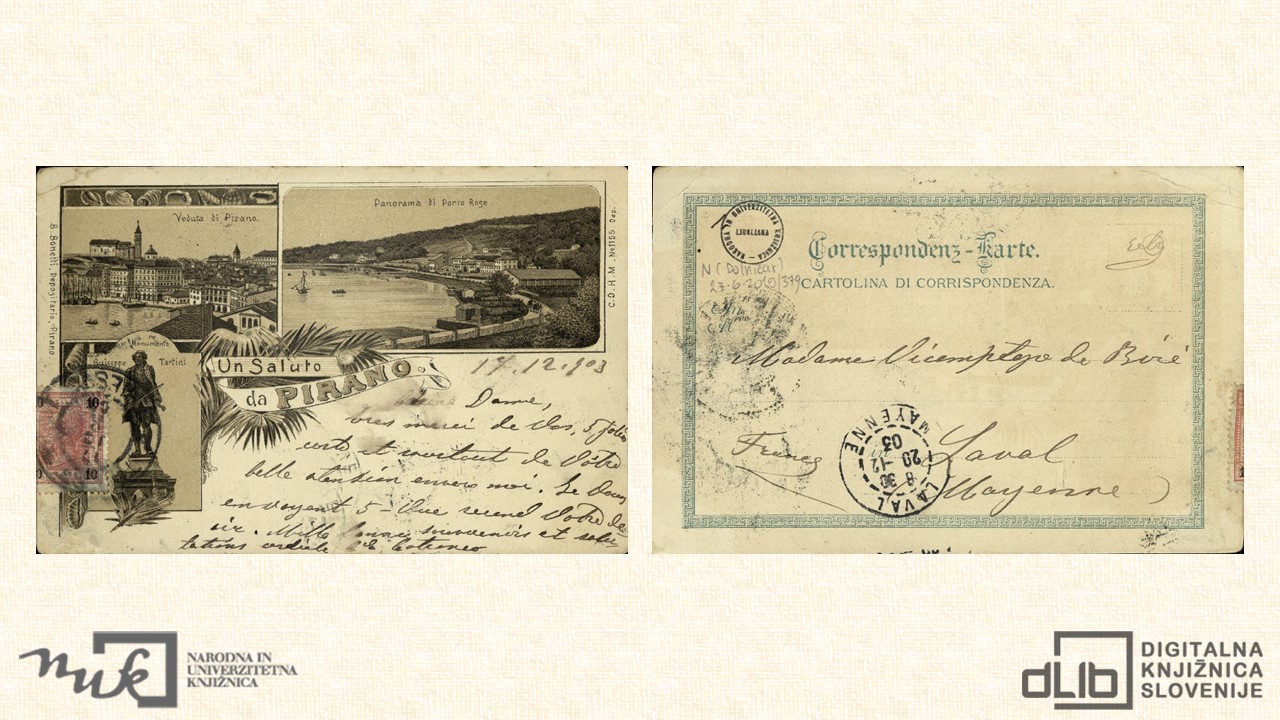 Veduta di Pirano.
Panorama di Porto Rose
B. Bonetti, Depositario, Pirano
C.D.H.M. №1155 Dep.
Monumento
Guiseppe Tartini
Un Saluto
da PIRANO.
17.12.903
10 10
10
Dame,
merci de vos, 5 jolies
et surtout de Vôtre
belle atansion envers moi. Je Vous
envoyent 5 - Vue second Votre de-
sir. Mille bonne souvenirs et salu-
tations cordiale
NARODNA IN UNIVERZITETNA KNJIŽNICA
LJUBLJANA
Correspondenz-Karte.
CARTOLINA DI CORRISPONDENZA.
N (Dolničar)
27-6-2005/379
Madame Vicemptesse de
France
Laval
Mayenne
LAVAL
8 30
20 -12
03
MAYENNE
nuk
NARODNA IN
UNIVERZITETNA
KNJIŽNICA
dLib
DIGITALNA
KNJIŽNICA
SLOVENIJE